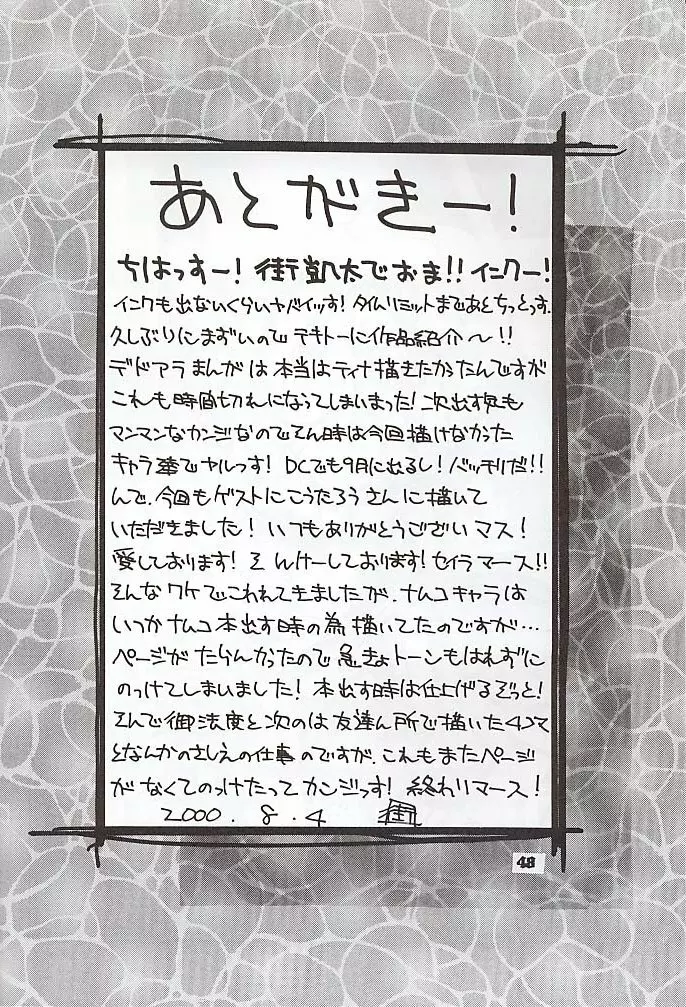 あとがきー!
ちはっすー! 街凱太でおま!! イニクー!
インクも出ないくらいヤバイッす! タイムリミットまであとちっとっす.
久しぶりにまずいので テキトーに作品紹介〜!!
デドアラ まんが は 本当はティナ描きたかったんですが
これも 時間切れになってしまいまった! 次出す時も
マンマンなカンジなのでそん時は今回描けなかった
キャラ達でヤルっす! DCでも9月に出るし! バッチリだ!!
んで、今回もゲストにこうたろうさんに描いて
いただきました! いつもありがとうございマス!
愛しております! そんけーしております! セイラマース!!
そんなワケでこわれてきましたが、ナムコキャラは
いつかナムコ本出す時の為描いてたのですが…
ページがたらんかったので急きょトーンもはれずに
のっけてしまいました! 本出す時は仕上げるぞっと!
そんで御法度と次のは友達ん所で描いた4コマ
となんかのさしえの仕事のですが、これもまたページ
がなくてのっけたってカンジっす! 終わりマース!
2000.8.4 街
48